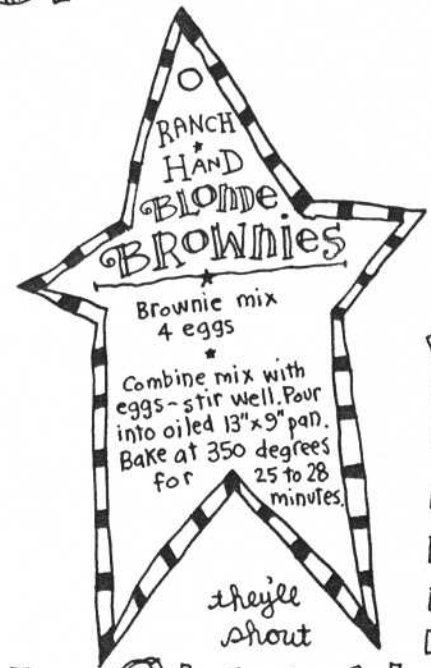 RANCH
HAND
BLONDE
BROWNIES
Brownie mix
4 eggs
Combine mix with
eggs~stir well. Pour
into oiled 13"x9" pan.
Bake at 350 degrees
for 25 to 28
minutes.
they'll
shout